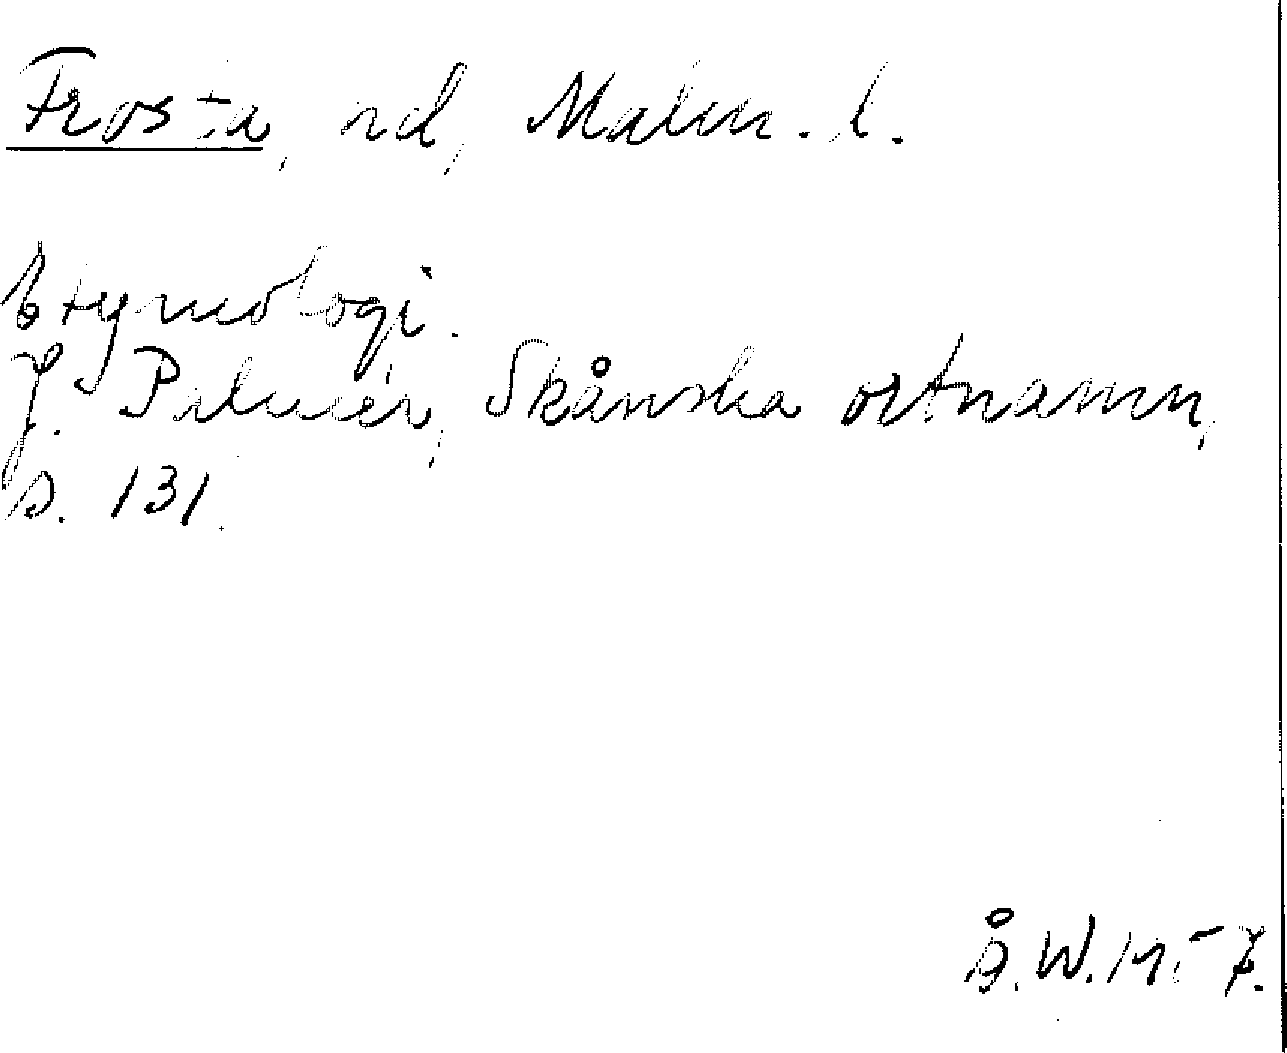 Frosta, hd, Malm. l.
Etymologi.
J. Palmér, Skånska ortnamn,
s. 131.
Å.W. 1957.